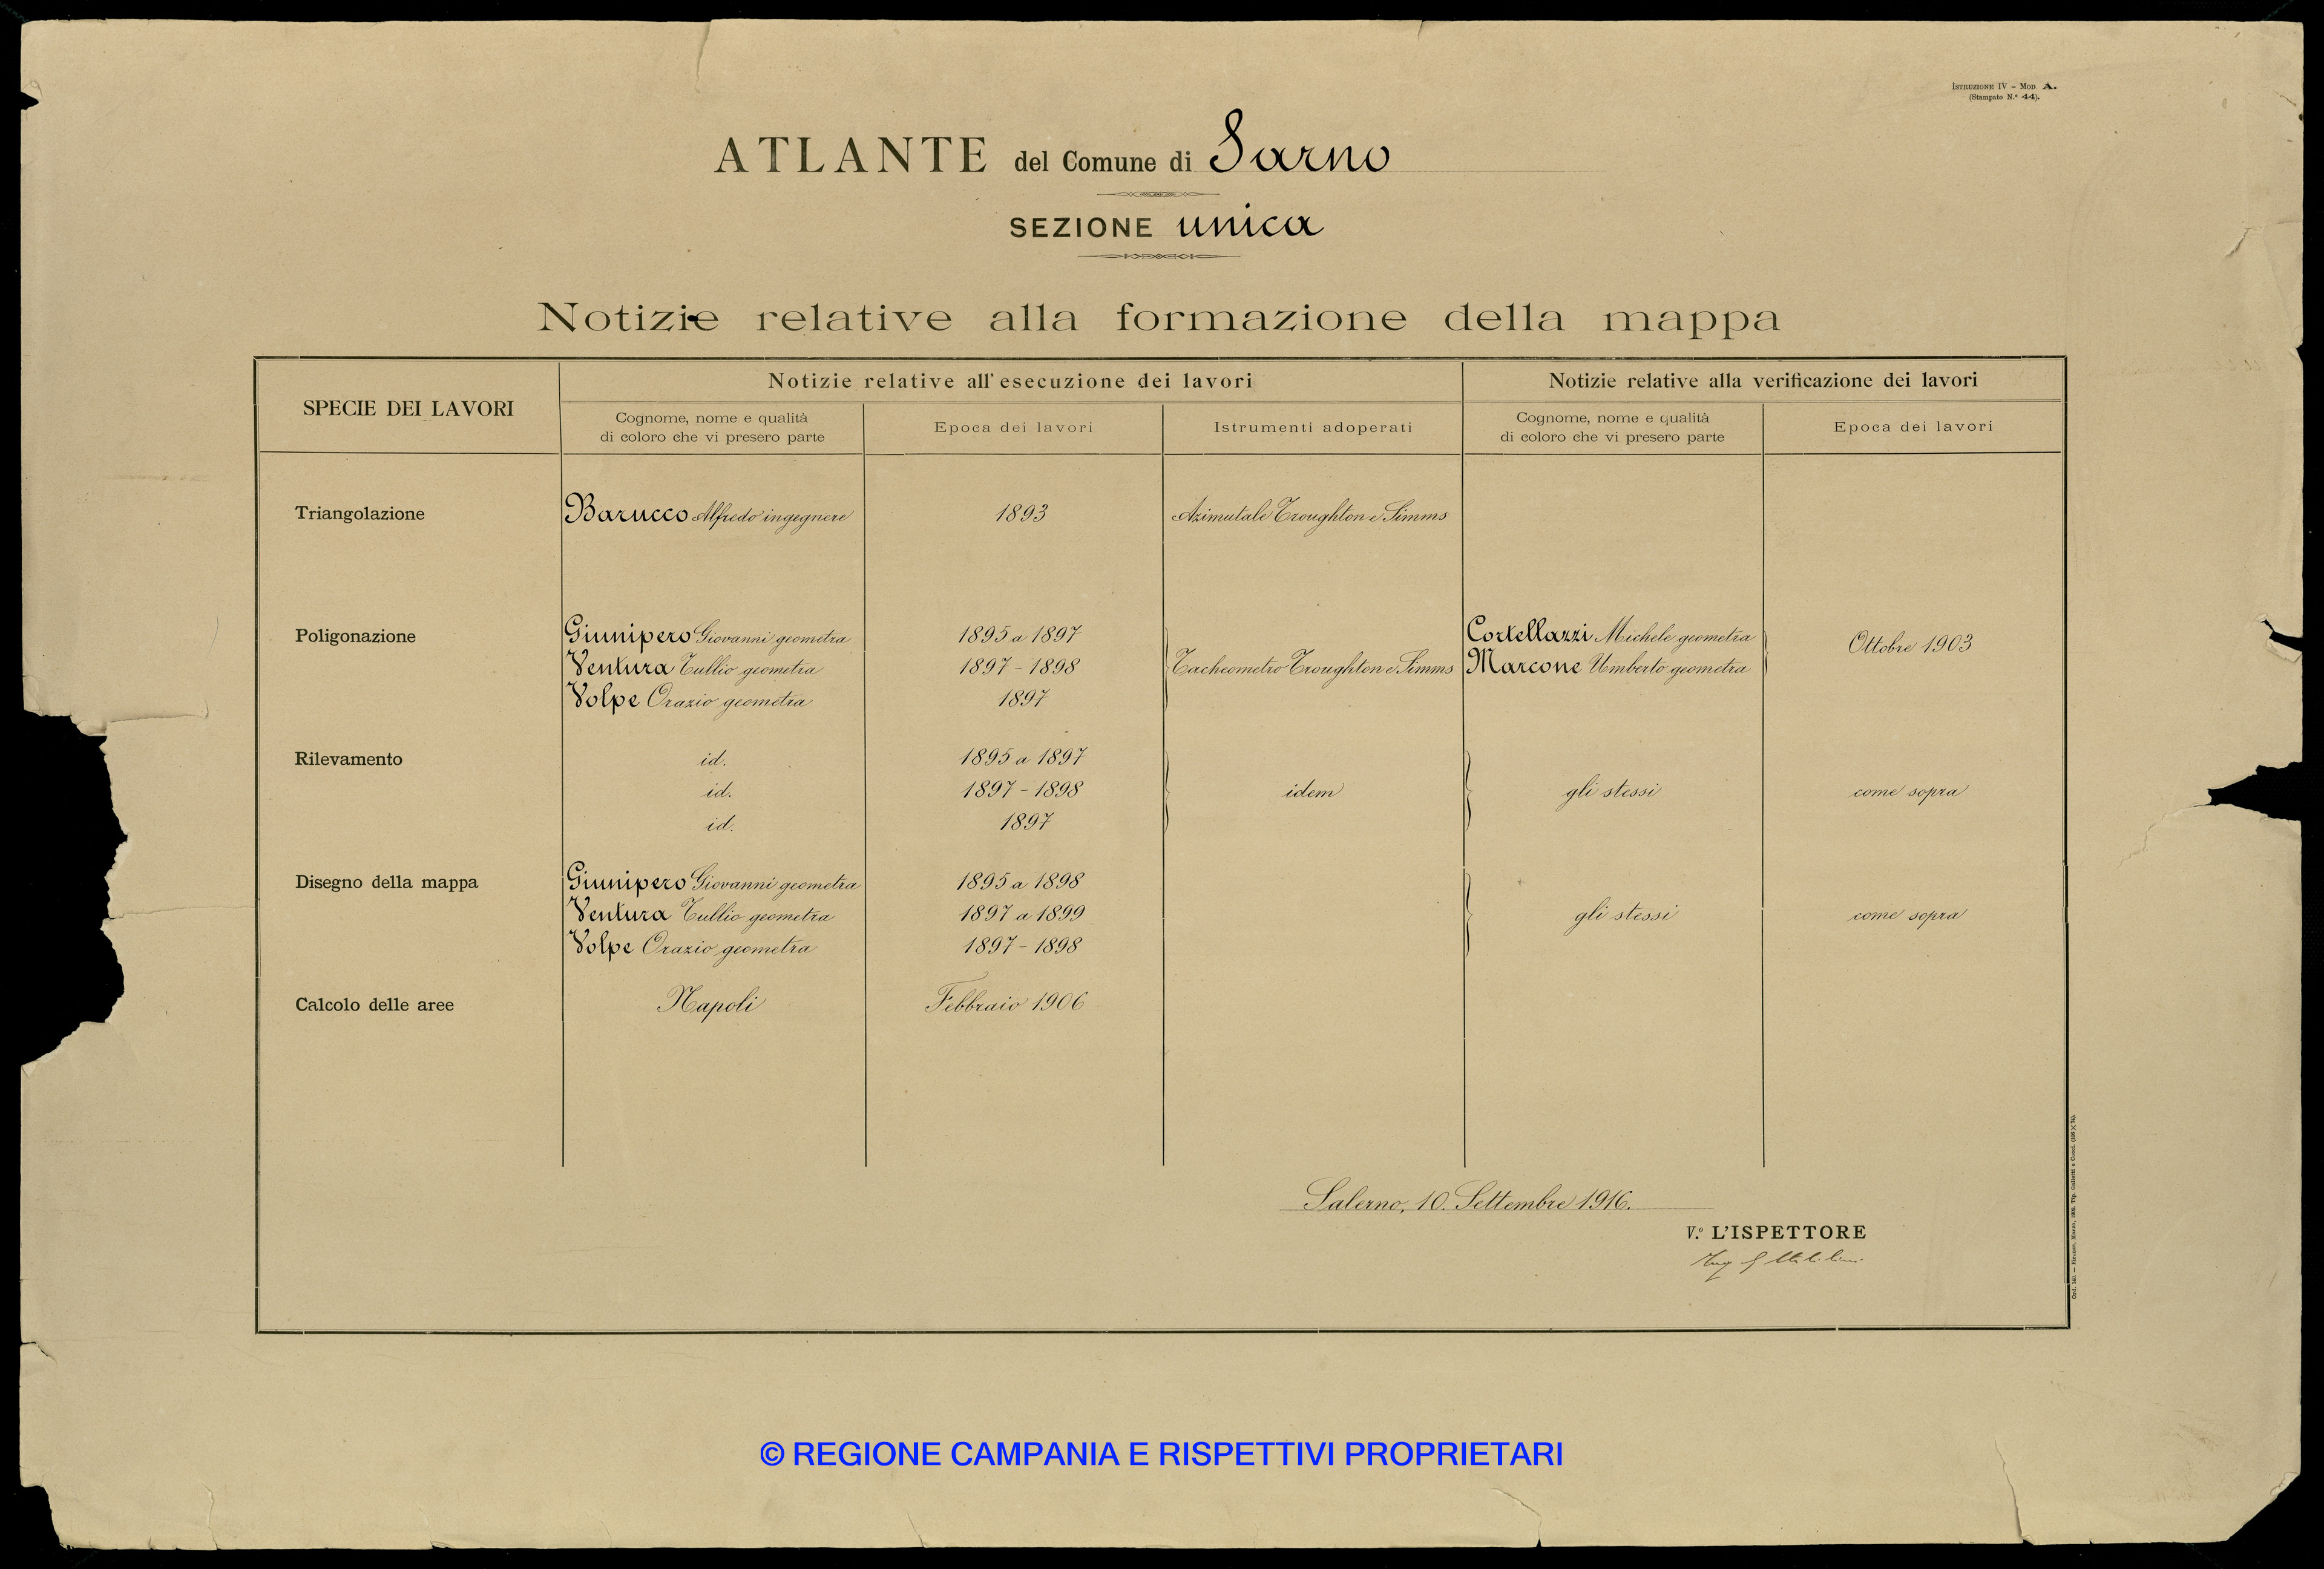 ISTRUZIONE IV – MOD. A.
(Stampato N.° 44).
ATLANTE del Comune di Sarno
SEZIONE unica
Notizie relative alla formazione della mappa
SPECIE DEI LAVORI
Notizie relative all'esecuzione dei lavori
Notizie relative alla verificazione dei lavori
Cognome, nome e qualità
di coloro che vi presero parte
Epoca dei lavori
Istrumenti adoperati
Cognome, nome e qualità
di coloro che vi presero parte
Epoca dei lavori
Triangolazione Barucco Alfredo ingegnere 1893 Azimutale Troughton e Simms
Poligonazione Giunipero Giovanni geometra 1895 a 1897 Cortellazzi Michele geometra Ottobre 1903
Ventura Tullio geometra 1897 – 1898 Tacheometro Troughton e Simms Marcone Umberto geometra
Volpe Orazio geometra 1897
Rilevamento id. 1895 a 1897
id. 1897 – 1898 idem gli stessi come sopra
id. 1897
Disegno della mappa Giunipero Giovanni geometra 1895 a 1898
Ventura Tullio geometra 1897 a 1899 gli stessi come sopra
Volpe Orazio geometra 1897 – 1898
Calcolo delle aree Napoli Febbraio 1906
Salerno, 10. Settembre 1916.
V.° L'ISPETTORE
Ing G
© REGIONE CAMPANIA E RISPETTIVI PROPRIETARI